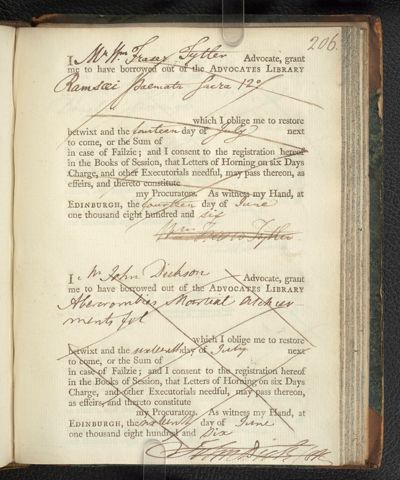 206.
I Mr Wm Fraser Tytler Advocate, grant
me to have borrowed out of the ADVOCATES LIBRARY
Ramsæi Poemata Sacra 12o
which I oblige me to restore
betwixt and the fourteen day of July next
to come, or the Sum of
in case of Failzie; and I consent to the registration hereof
in the Books of Session, that Letters of Horning on six Days
Charge, and other Executorials needful, may pass thereon, as
effeirs, and thereto constitute
my Procurators. As witness my Hand, at
EDINBURGH, the fourteen day of June
one thousand eight hundred and six
Wm Fraser Tytler
I Mr John Dickson Advocate, grant
me to have borrowed out of the ADVOCATES LIBRARY
Abercrombies Martial Atchiev
ments fol
which I oblige me to restore
betwixt and the sixteenth day of July next
to come, or the Sum of
in case of Failzie; and I consent to the registration hereof
in the Books of Session, that Letters of Horning on six Days
Charge, and other Executorials needful, may pass thereon,
as effeirs, and thereto constitute
my Procurators. As witness my Hand, at
EDINBURGH, the sixteenth day of June
one thousand eight hundred and Six
John Dickson